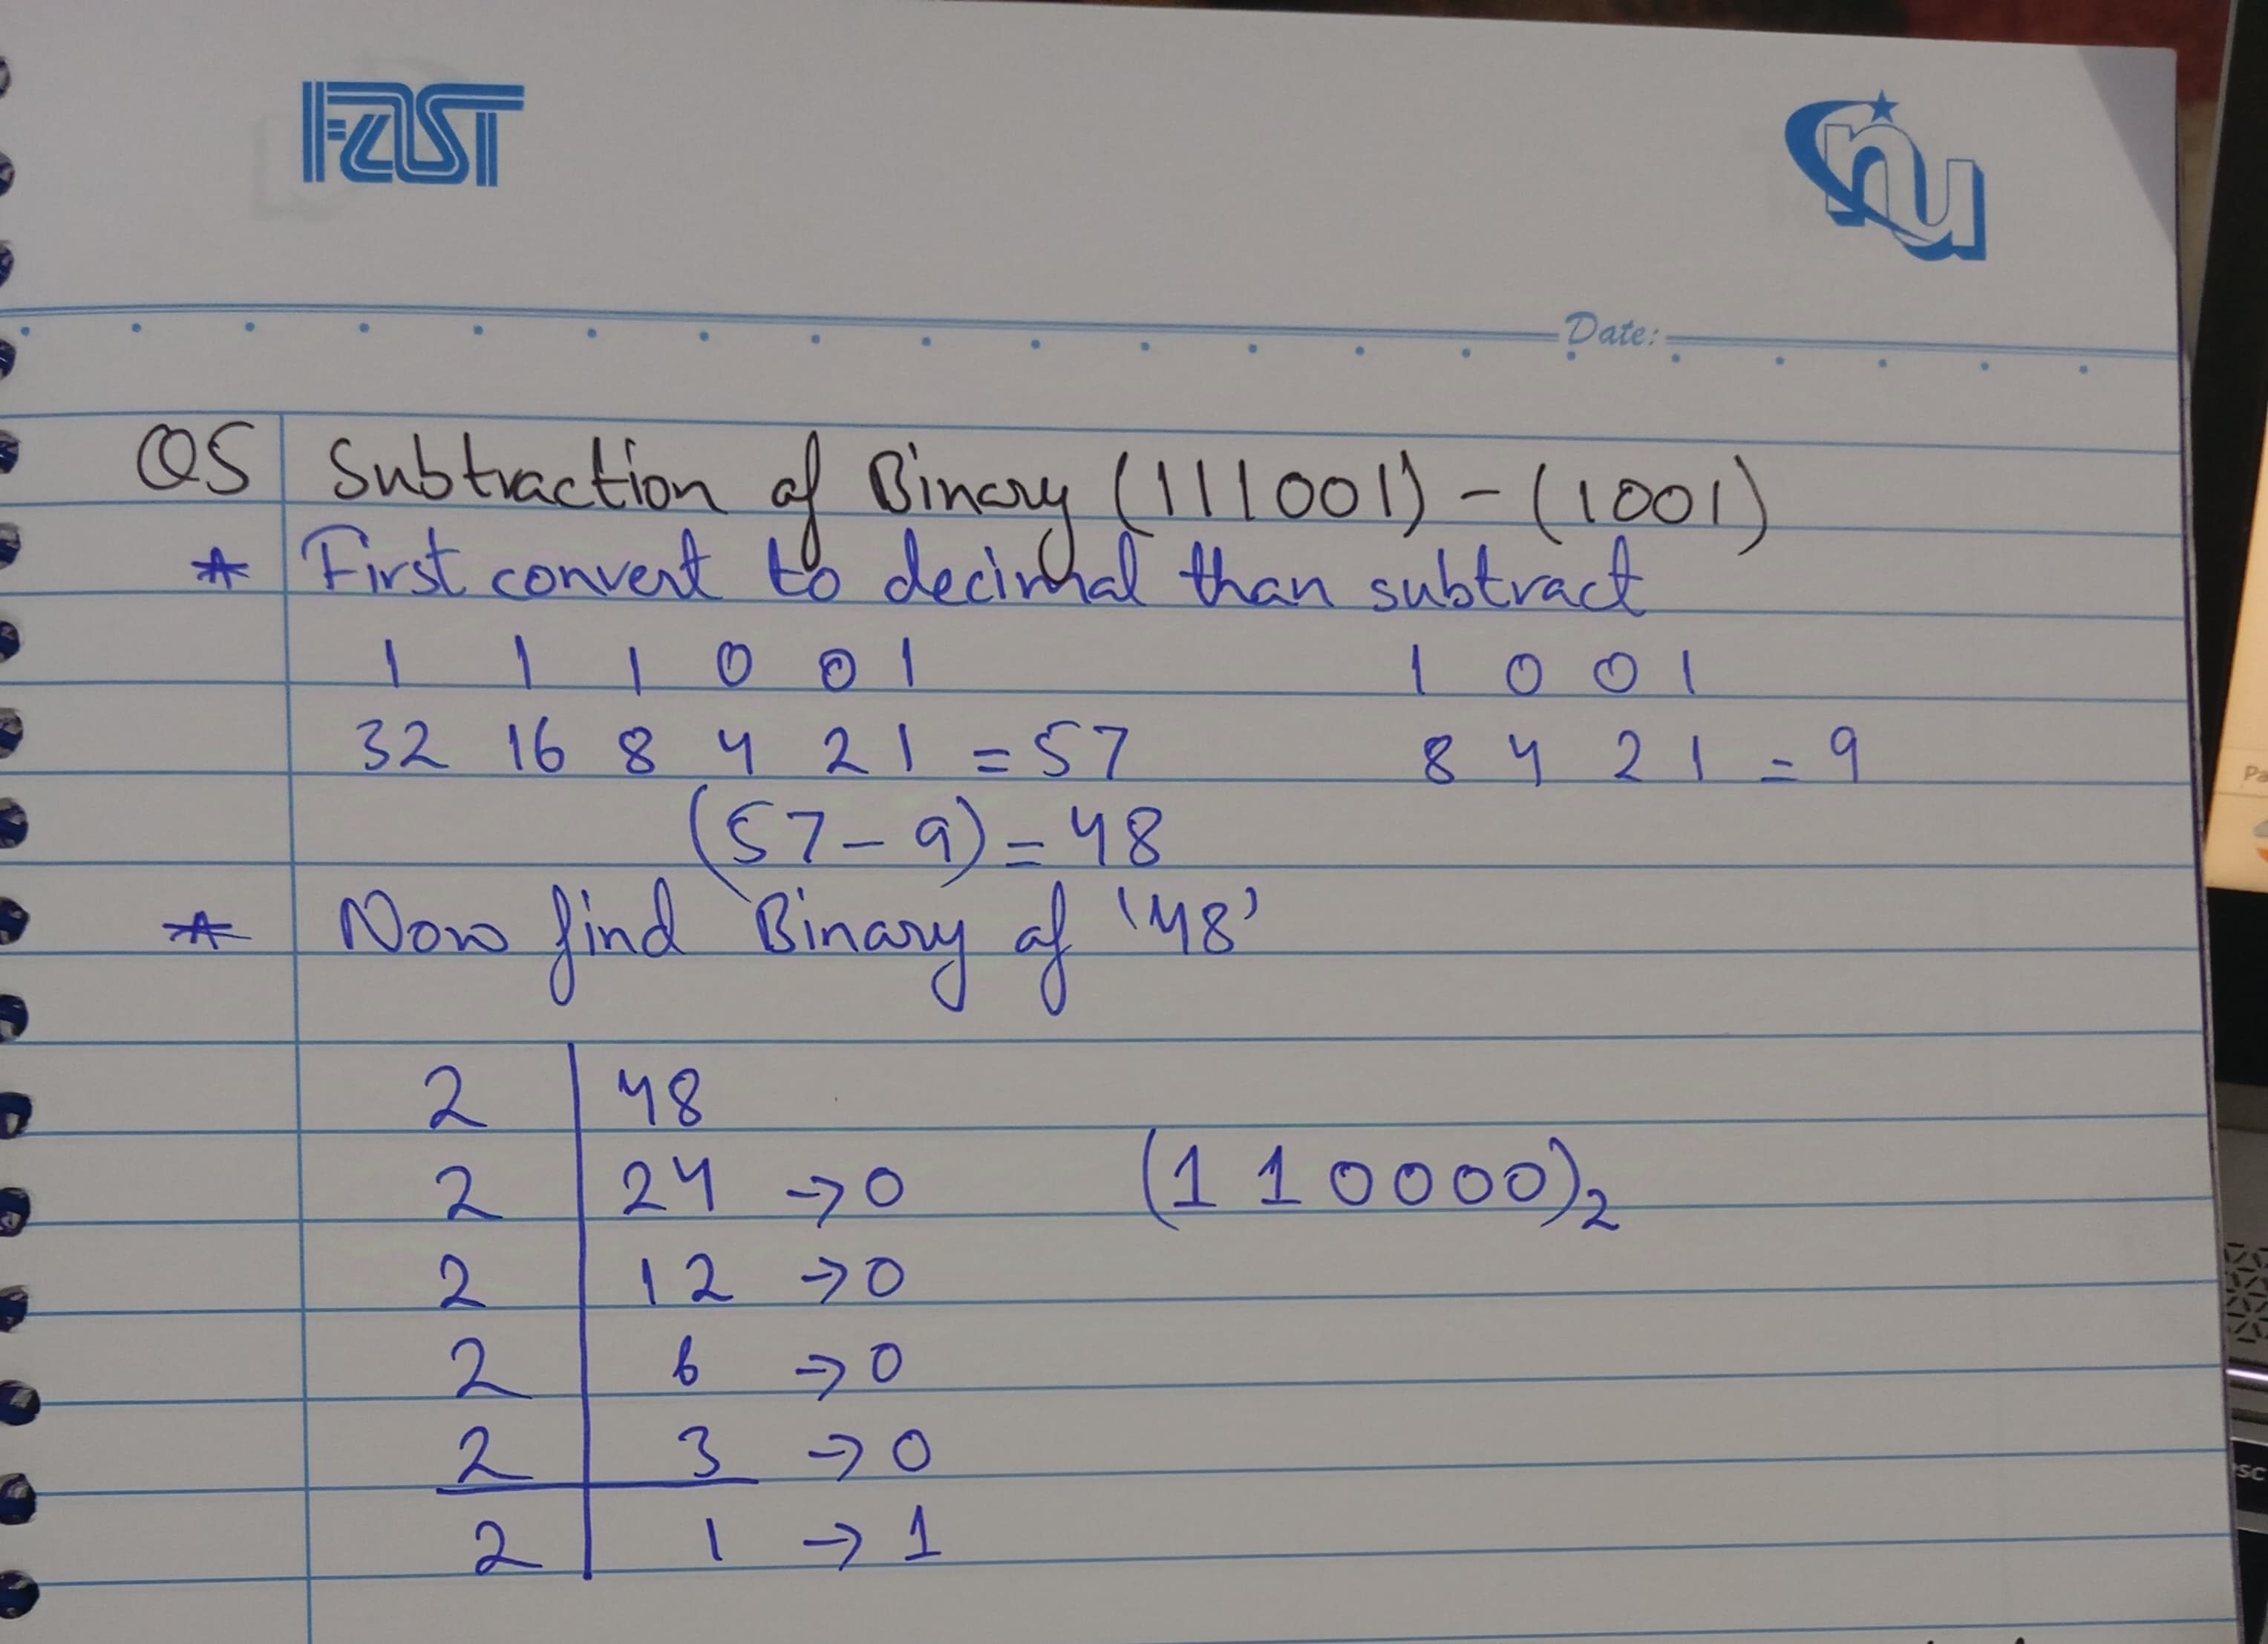 FAST
nu
Date:
Q5 Subtraction of Binary (111001) - (1001)
* First convert to decimal than subtract
1 1 1 0 0 1 1 0 0 1
32 16 8 4 2 1 = 57 8 4 2 1 = 9
(57 - 9) = 48
* Now find Binary of '48'
2 48
2 24 → 0 (1 1 0 0 0 0)₂
2 12 → 0
2 6 → 0
2 3 → 0
2 1 → 1